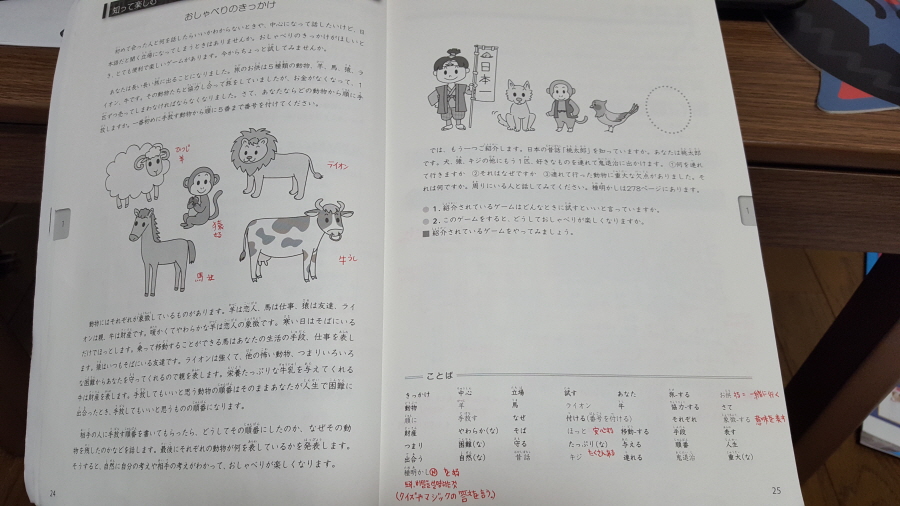 知って楽しむ
おしゃべりのきっかけ
初めて会った人と何を話したらいいかわからないときや、中心になって話したいけど、日
本語だと聞く立場になってしまうときはありませんか。おしゃべりのきっかけがほしいと
き、とても便利で楽しいゲームがあります。今からちょっと試してみませんか。
あなたは長い長い旅に出ることになりました。旅のお供は5種類の動物、羊、馬、猿、ラ
イオン、牛です。その動物たちと協力し合って旅をしていましたが、お金がなくなって、1
匹ずつ売ってしまわなければならなくなりました。さて、あなたならどの動物から順に手
放しますか。一番初めに手放す動物から順に5番まで番号を付けてください。
ひつじ
羊
ライオン
猿
馬
牛うし
動物にはそれぞれが象徴しているものがあります。羊は恋人、馬は仕事、猿は友達、ライ
オンは親、牛は財産です。暖かくてやわらかな羊は恋人の象徴です。寒い日はそばにいる
だけでほっとします。乗って移動することができる馬はあなたの生活の手段、仕事を表し
ます。猿はいつもそばにいる友達です。ライオンは強くて、他の怖い動物、つまりいろいろ
な困難からあなたを守ってくれるので親を表します。栄養たっぷりな牛乳を与えてくれる
牛は財産を表します。手放してもいいと思う動物の順番はそのままあなたが人生で困難に
出会ったとき、手放してもいいと思うものの順番になります。
相手の人に手放す順番を書いてもらったら、どうしてその順番にしたのか、なぜその動
物を残したのかなどを話します。最後にそれぞれの動物が何を表しているかを発表します。
そうすると、自然に自分の考えや相手の考えがわかって、おしゃべりが楽しくなります。
24
日本一
では、もう一つご紹介します。日本の昔話「桃太郎」を知っていますか。あなたは桃太郎
です。犬、猿、キジの他にもう1匹、好きなものを連れて鬼退治に出かけます。①何を連れ
て行きますか ②それはなぜですか ③連れて行った動物に重大な欠点がありました。そ
れは何ですか。周りにいる人と話してみてください。種明かしは278ページにあります。
1. 紹介されているゲームはどんなときに試すといいと言っていますか。
2. このゲームをすると、どうしておしゃべりが楽しくなりますか。
紹介されているゲームをやってみましょう。
1
1
ことば
きっかけ 中心 立場 試す あなた 旅-する お供 一緒に行く
動物 羊 馬 ライオン 牛 協力-する さて
順に 手放す なぜ 付ける(番号を付ける) それぞれ 象徴-する 意味を表す
財産 やわらかな(な) そば ほっと 安心する 移動-する 手段 表す
つまり 困難(な) 守る たっぷり(な) たくさんある 与える 順番 人生
出会う 自然(な) 昔話 キジ 連れる 鬼退治 重大(な)
種明かし
(クイズやマジックの答を言う。)
25